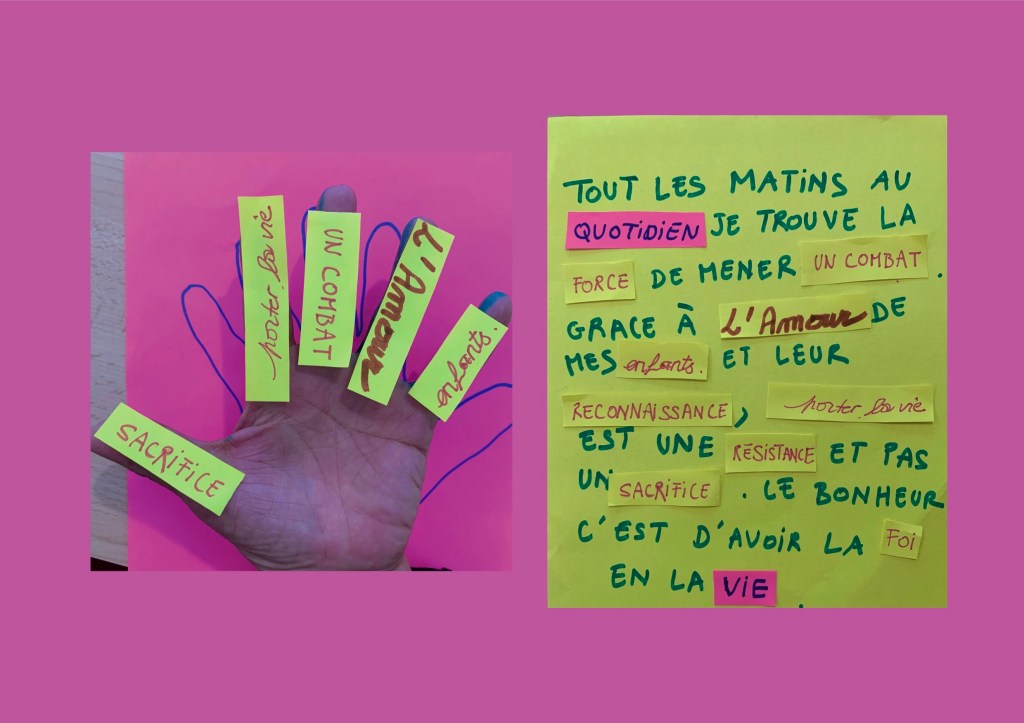 porter la vie
UN COMBAT
L'Amour
enfants.
SACRIFICE
TOUT LES MATINS AU
QUOTIDIEN JE TROUVE LA
FORCE DE MENER UN COMBAT.
GRACE À L'Amour DE
MES enfants. ET LEUR
RECONNAISSANCE, porter la vie
EST UNE RÉSISTANCE ET PAS
UN SACRIFICE. LE BONHEUR
C'EST D'AVOIR LA FOI
EN LA VIE.